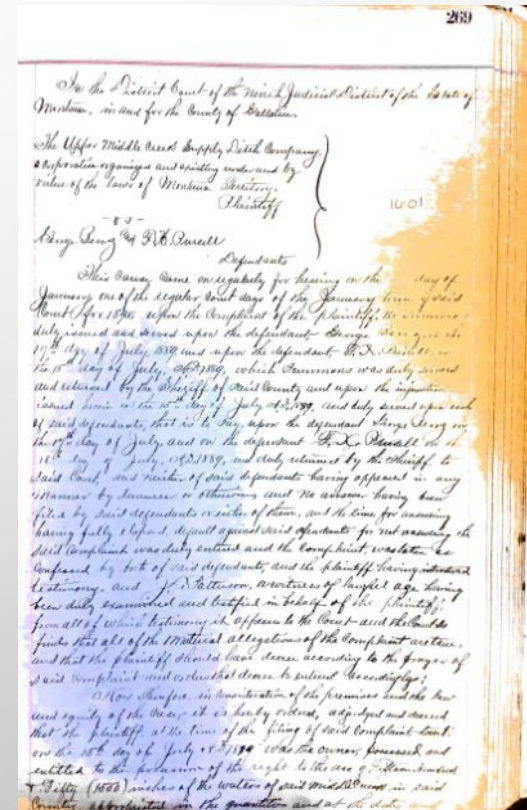 269
In the District Court of the Ninth Judicial District of the State of
Montana, in and for the County of Gallatin.
The Upper Middle Creek Supply Ditch Company,
a corporation organized and existing under and by
virtue of the laws of Montana Territory.
Plaintiff
1601
- vs -
George Benz &
Defendants
This cause came on regularly for hearing on the day of
January one of the regular Court days of the January term of said
Court for upon the Complaint of the plaintiff, the Summons
duly issued and served upon the defendant George Benz on the
17th day of July, 1889 and upon the defendant on
the 18th day of July, A.D. 1889, which Summons was duly served
and returned by the Sheriff of said County and upon the injunction
issued herein on the 15th day of July A.D. 1889, and duly served upon each
of said defendants, that is to say, upon the defendant George Benz on
the 17th day of July, and on the defendant on the
18th day of July, A.D. 1889, and duly returned by the Sheriff to
said Court, and neither of said defendants having appeared in any
manner by demurrer or otherwise and no answer having been
filed by said defendants or either of them, and the time for answering
having fully elapsed, default against said defendants for not answering the
said Complaint was duly entered and the Complaint was taken as
confessed by both of said defendants, and the plaintiff having introduced
testimony, and Patterson, a witness of lawful age having
been duly examined and testified in behalf of the plaintiff;
from all of which testimony it appears to the Court and the Court so
finds that all of the material allegations of the Complaint are true,
and that the plaintiff should have decree according to the prayer of
said Complaint and orders that decree be entered accordingly;
Now therefore, in consideration of the premises and the law
and equity of the case, it is hereby ordered, adjudged and decreed
that the plaintiff, at the time of the filing of said Complaint
on the 15th day of July A.D. 1889 was the owner, possessed and
entitled to the possession of the right to the use of Fifteen Hundred
& Fifty (1550) inches of the waters of said Middle Creek in said
County, appropriated in the quantities and at the dates